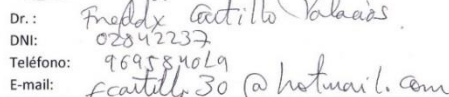 Dr. : Freddx Castillo Palacios
DNI: 02842237
Teléfono: 969584019
E-mail: fcastillo30@hotmail.com